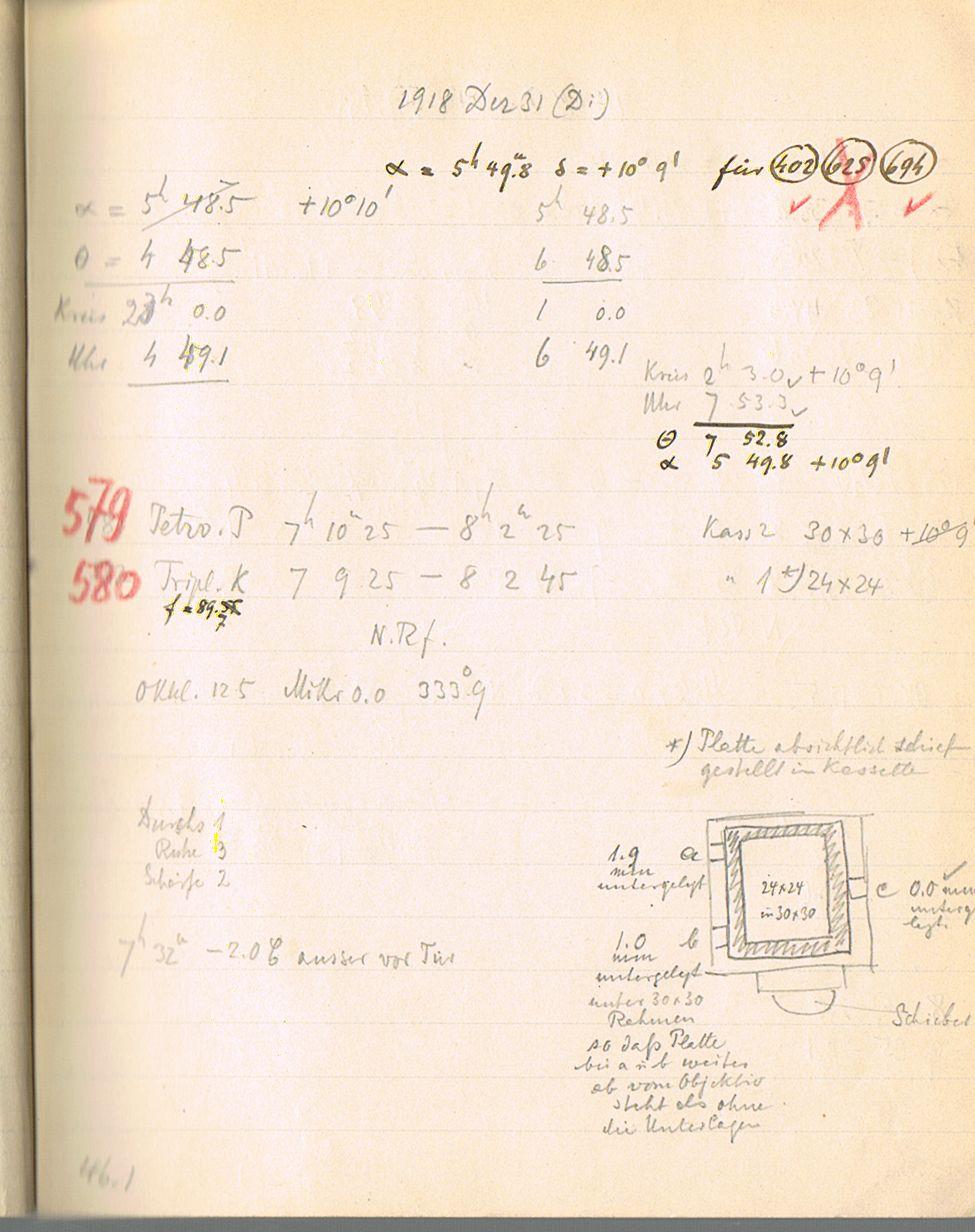 1918 Dez 31 (Di)
α = 5h 49m.8 δ = +10° 9' für 402 625 694
α = 5h 48.5 +10°10' 5h 48.5
θ = 4 48.5 6 48.5
Kreis 23h 0.0 1 0.0
Uhr 4 49.1 6 49.1
Kreis 2h 3.0 + 10° 9'
Uhr 7 53.3
θ 7 52.8
α 5 49.8 +10° 9'
579 Petzv. P 7h 10m 25 — 8h 2m 25 Kass 2 30×30 +10° 9
580 Tripl. K 7 9 25 — 8 2 45 " 1 *) 24×24
f = 89.7
N.Rf.
Okul. 125 Mikr 0.0 333°.9
*) Platte absichtlich schief
gestellt in Kassette
Durchs 1
Ruhe 3
Schärfe 2
1.9 a
mm
untergelegt
24×24
in 30×30
c 0.0 mm
unterge
legt.
7h 32m −2.0 C ausser vor Tür
1.0 b
mm
untergelegt
unter 30×30
Rahmen
so daß Platte
bei a u b weiter
ab vom Objektiv
steht als ohne
die Unterlagen
Schieber
46.1